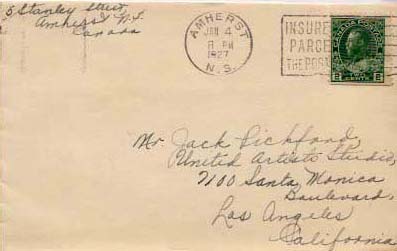 5 Stanley Street,
Amherst N.S.
Canada
AMHERST
JAN 4
PM
1927
N.S.
INSURE
PARCE
THE POS
CANADA POSTAGE
2 CENTS 2
Mr. Jack Pickford
United Artists Studio,
7100 Santa Monica
Boulevard,
Los Angeles
California